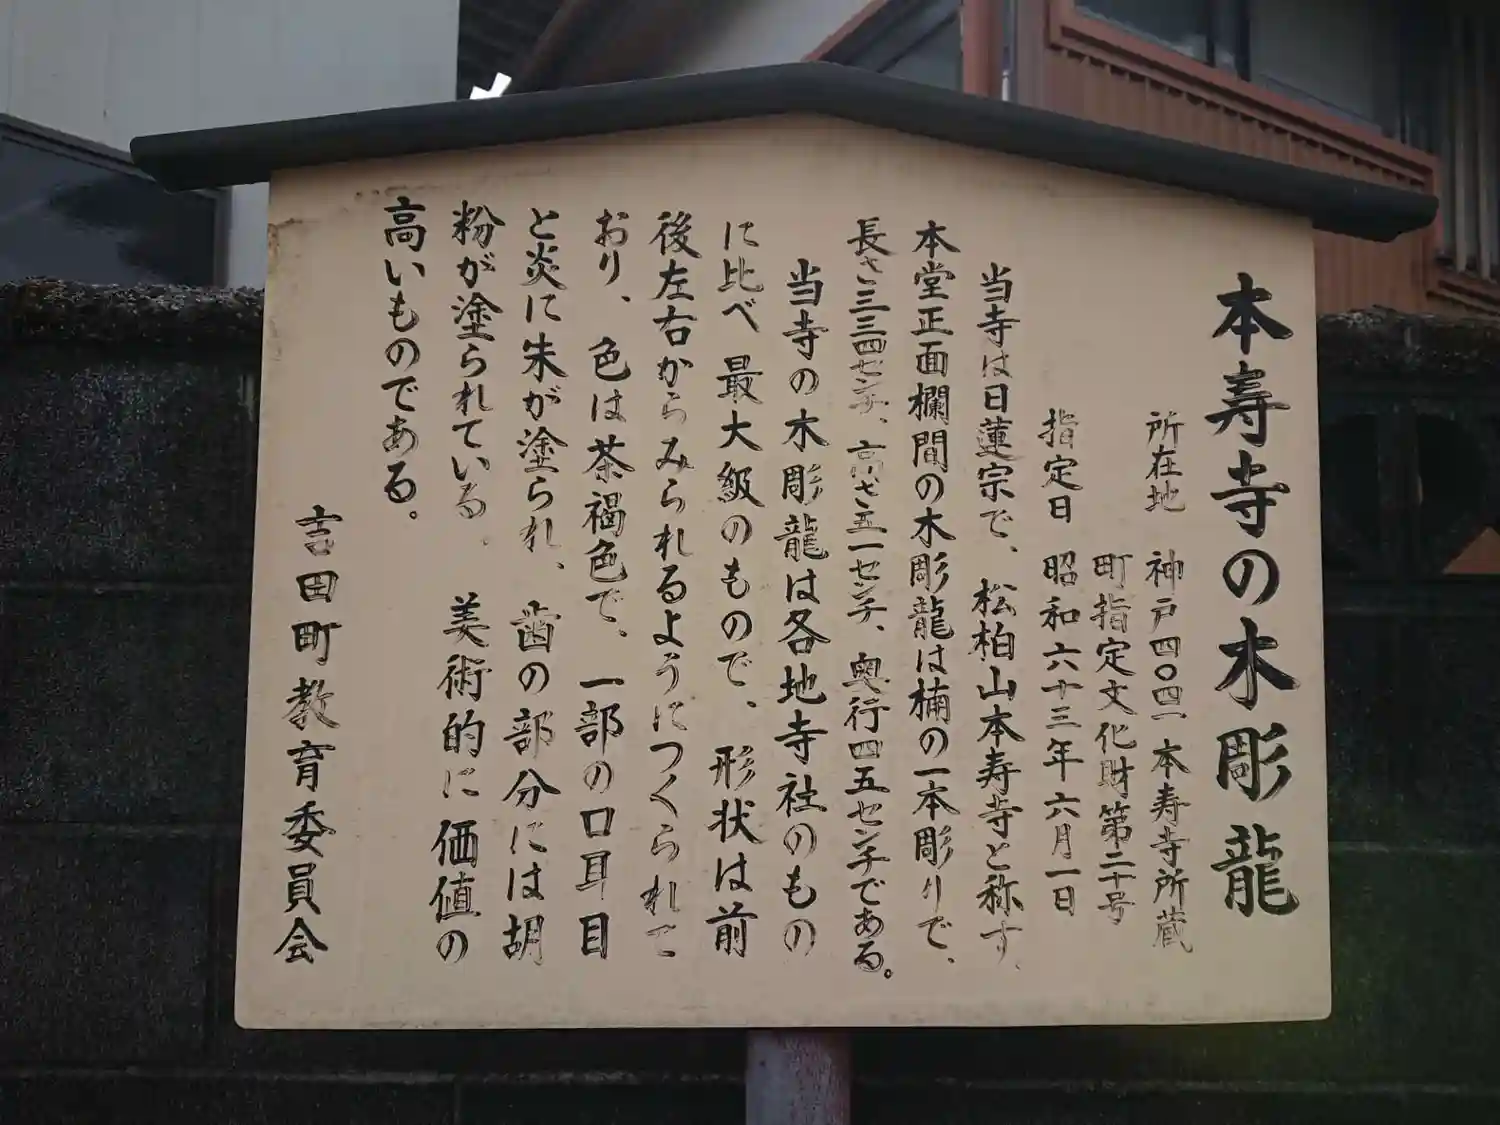 本寿寺の木彫龍
所在地　神戸四〇四一　本寿寺所蔵
町指定文化財第二十号
指定日　昭和六十三年六月一日
当寺は日蓮宗で、松柏山本寿寺と称す、
本堂正面欄間の木彫龍は楠の一本彫りで、
長さ三三四センチ、高さ五一センチ、奥行四五センチである。
当寺の木彫龍は各地寺社のもの
に比べ最大級のもので、形状は前
後左右からみられるようにつくられて
おり、色は茶褐色で、一部の口耳目
と炎に朱が塗られ、歯の部分には胡
粉が塗られている。美術的に価値の
高いものである。
吉田町教育委員会